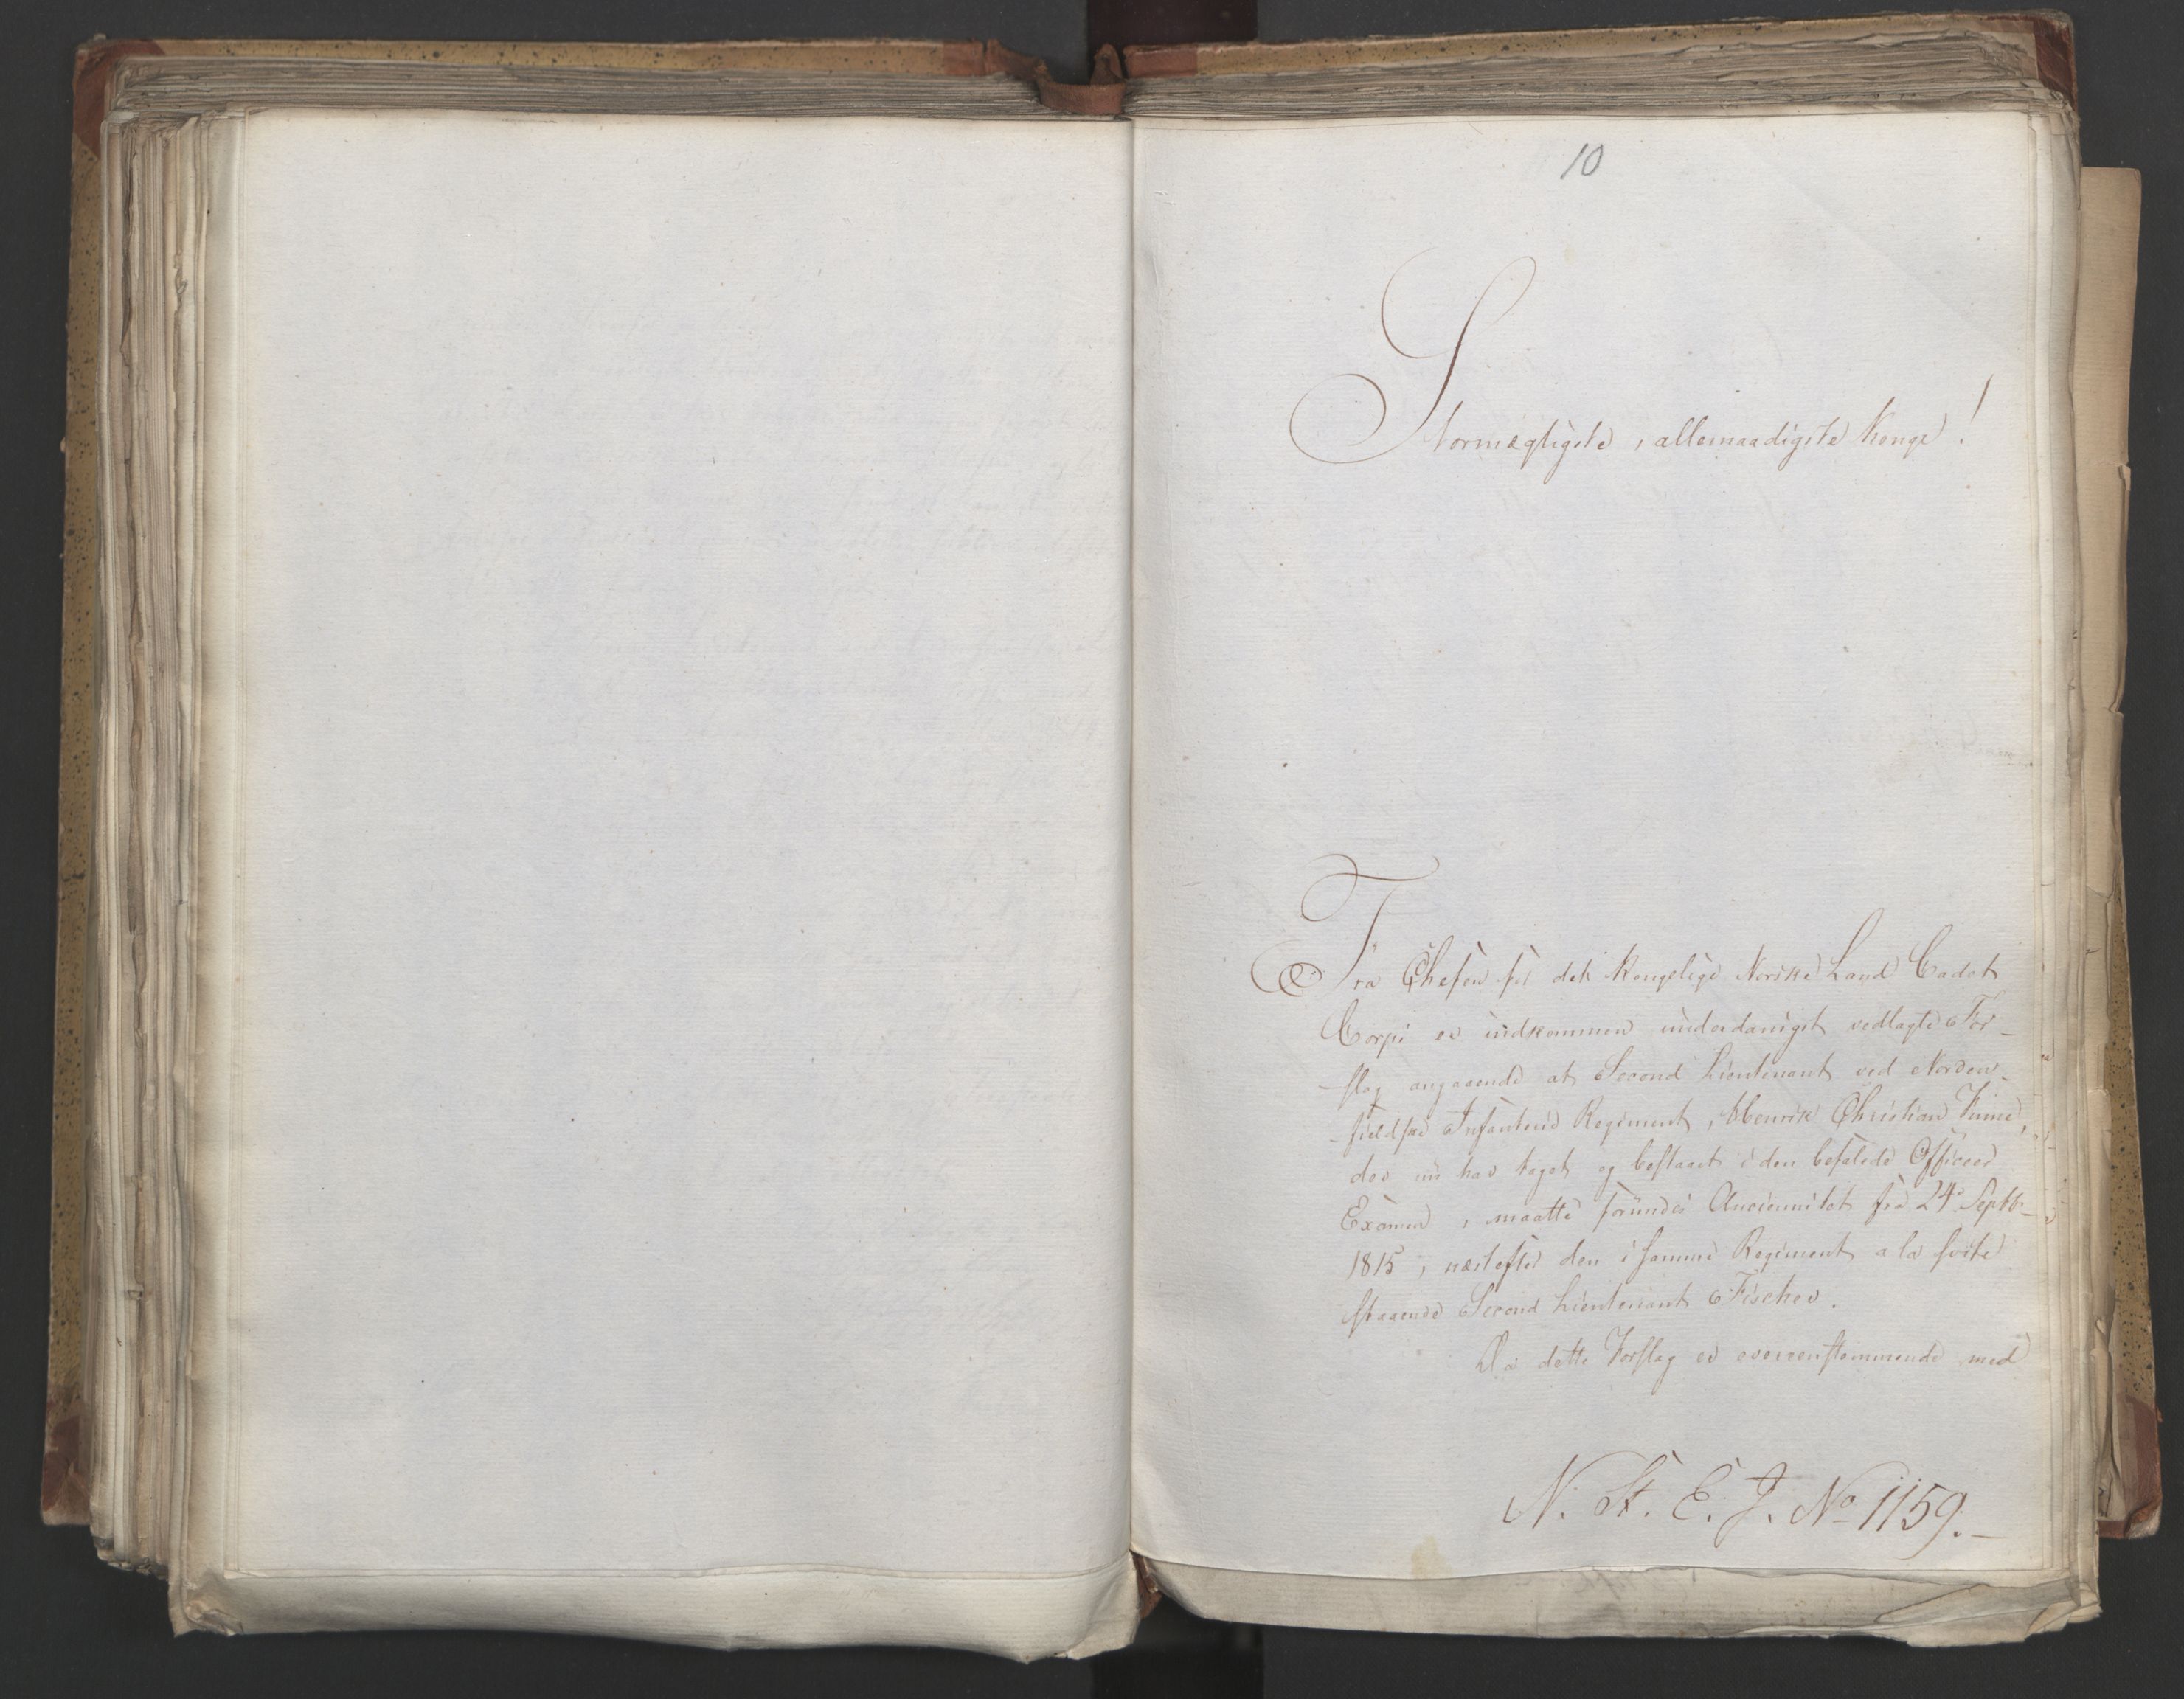 10
Stormægtigste, allernaadigste Konge!
Fra Chefen for det Kongelige Norske Land Cadet
Corps er indkommen underdanigst vedlagte For-
-slag angaaende at Second Lieutenant ved Norden-
-fieldske Infanterie Regiment, Henrik Christian Finne,
der nu har taget og bestaaet i den befalede Officeer
Examen, maatte forundes Anciennitet fra 24de Septbr
1815, næstefter den i samme Regiment a la svite
staaende Second Lieutenant Fischer.
Da dette Forslag er overeenstemmende med
N. St. E. J. No 1159.-